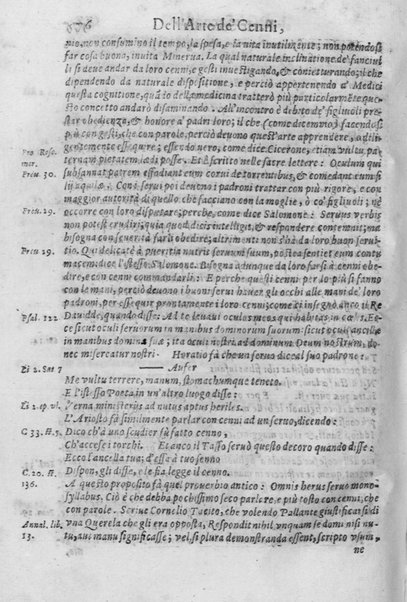 Dell'Arte de' Cenni,
nio, non consumino il tempo, la spesa, e la vita inutilmente; non potendosi
far cosa buona, inuita Minerua. La qual naturale inclinatione de' fanciul
li si deue andar da loro cenni, e gesti inuestigando, & conietturando; il che
dipendendo da naturale dispositione, e però appertenendo a' Medici
questa cognitione, quãdo dell'a medicina tratterò più particolarmẽte que-
sto concetto andarò disaminando. All'incontro è debito de' figliuoli pre-
star obedienza, & honore a' padri loro; il che (come dicemmo) facendosi
più con gesti, che con parole, perciò deuono quest'arte apprendere, a dili-
gentemente essequire; essendo nero, come dice Cicerone, etiam vultu pa-
Pro Rose. ternam pietatem lædi posse. Et è scritto nelle sacre lettere: Oculum qui
mer. subsannat patrem effodiant eum corui de torrentibus, & comedant eum fi
Prou. 30. lij aquilæ. Con i serui poi deuono i padroni trattar con più rigore, e con
maggior autorità di quello che facciano con la moglie, ò co' figliuoli; nè
Prou. 29. occorre con loro disputare, perche, come dice Salomone: Seruus verbis
non potest erudiri, quia quod dicis intelligit, & respondere contemnit; ma
bisogna con seuerità farsi obedire; altrimenti non s'hà da loro buon serui-
Prou. 29. tio. Qui delicatè à pueritia nutrit seruum suum, postea sentiet eum contu
macem: dice l'istesso Salomone. Bisogna adunque da loro farsi à cenni obe-
dire, e à cenni commandarli: E perche questi cenni per lo più si fanno
con le mani, perciò deuono i buoni serui hauer gli occhi alle mani de' loro
padroni, per essequir prontamente i loro cenni; come ci insegnò anco il Rè
Psal. 122. Dauidde, quando disse: Ad te leuaui oculos meos qui habitas in cælis. Ec-
ce sicut oculi seruorum in manibus dominorum suorum: sicut oculi ancillæ
in manibus dominæ suæ, ita oculi nostri ad dominum Deum nostrum, do-
nec misereatur nostri. Horatio fà che un seruo dica al suo padrone:
Li 2. Sat 7 —— Aufer
Me vultu terrere, manum, stomachumque teneto.
E l'istesso Poeta in un'altro luogo disse:
Li 2. ep. vl. Verna ministerijs ad nutus aptus heriles.
L'Ariosto fà similmente parlar con cenni ad un seruo, dicendo:
C 33. st. 5. Dico ch'à uno scudier fù fatto cenno,
Ch'accese i torchi. Et anco il Tasso seruò questo decoro quando disse:
Ecco l'ancella tua; d'esse à tuo senno
C. 20. st. Dispon, gli disse, e le fia legge il cenno.
136. A questo proposito fà quel prouerbio antico: Omnis herus seruo mono-
syllabus. Ciò è che debba pochissimo seco parlare, e più tosto con cenni, che
con parole. Scriue Cornelio Tacito, che volendo Pallante giustificarsi d'
Annal. lib. una Querela che gli era opposta, Respondit nihil vnquam se domi nisi nu-
13. tu, aut manu significasse; vel, si plura demonstranda essent, scripto vsum,
ne